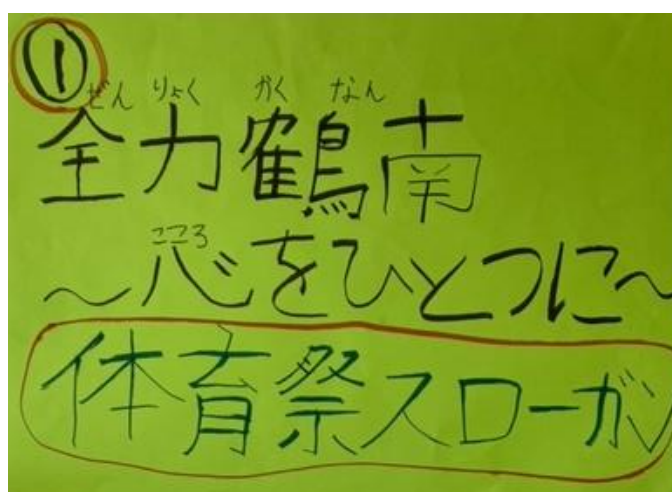 ①
ぜん りょく かく なん
全力鶴南
こころ
～心をひとつに～
体育祭スローガン